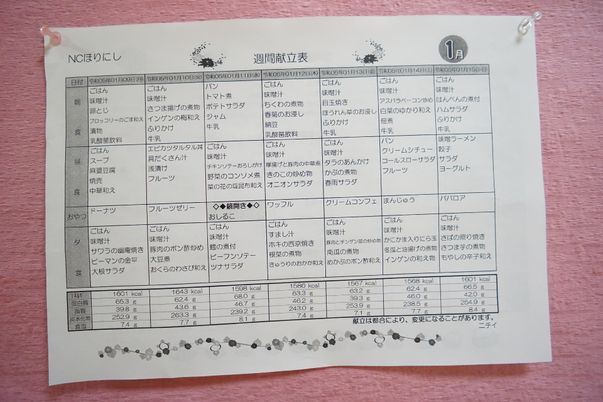 NCほりにし 週間献立表 1月
日付 令和05年01月09日(月) 令和05年01月10日(火) 令和05年01月11日(水) 令和05年01月12日(木) 令和05年01月13日(金) 令和05年01月14日(土) 令和05年01月15日(日)
朝食
ごはん ごはん パン ごはん ごはん ごはん ごはん
味噌汁 味噌汁 トマト煮 味噌汁 味噌汁 味噌汁 味噌汁
卵とじ さつま揚げの煮物 ポテトサラダ ちくわの煮物 目玉焼き アスパラベーコン炒め はんぺんの煮付
ブロッコリーのごま和え インゲンの梅和え ジャム 春菊のお浸し ほうれん草のお浸し 白菜のゆかり和え ハムサラダ
漬物 ふりかけ 牛乳 納豆 ふりかけ 佃煮 ふりかけ
乳酸菌飲料 牛乳 乳酸菌飲料 牛乳 牛乳 牛乳
昼食
ごはん エビカツタルタル丼 ごはん ごはん ごはん ごはん 味噌ラーメン
スープ 具だくさん汁 味噌汁 味噌汁 味噌汁 パン 餃子
麻婆豆腐 浅漬け チキンソテーおろしがけ 厚揚げと豚肉の中華煮 タラのあんかけ クリームシチュー サラダ
焼売 フルーツ 野菜のコンソメ煮 きのこの炒め物 かぶの煮物 コールスローサラダ ヨーグルト
中華和え 菜の花の塩昆布和え オニオンサラダ 春雨サラダ フルーツ
おやつ ドーナツ フルーツゼリー ◇◆鏡開き◆◇ おしるこ ワッフル クリームコンフェ まんじゅう ババロア
夕食
ごはん ごはん ごはん ごはん ごはん ごはん ごはん
味噌汁 味噌汁 味噌汁 すまし汁 味噌汁 味噌汁 味噌汁
サワラの幽庵焼き 豚肉のポン酢炒め 鱈の煮付 ホキの西京焼き 豚肉とチンゲン菜の炒め物 かにかま入りにら玉 さばの照り焼き
ピーマンの金平 大豆煮 ビーフンソテー 根菜の煮物 南瓜の煮物 冬瓜と油揚げの煮物 さつま芋の煮物
大根サラダ おくらのわさび和え ツナサラダ きゅうりのおかか和え めかぶのポン酢和え インゲンの和え物 もやしの辛子和え
1601 kcal 1643 kcal 1598 kcal 1580 kcal 1567 kcal 1668 kcal 1601 kcal
蛋白質 65.3 g 62.4 g 68.0 g 63.3 g 63.2 g 62.4 g 66.5 g
脂質 39.8 g 43.6 g 46.7 g 39.3 g 46.0 g 42.0 g
炭水化物 252.9 g 263.3 g 239.2 g 243.0 g 253.9 g 238.5 g 254.9 g
食塩 7.4 g 7.7 g 8.1 g 7.4 g 7.1 g 7.7 g 8.4 g
献立は都合により、変更になることがあります。
ニテイ